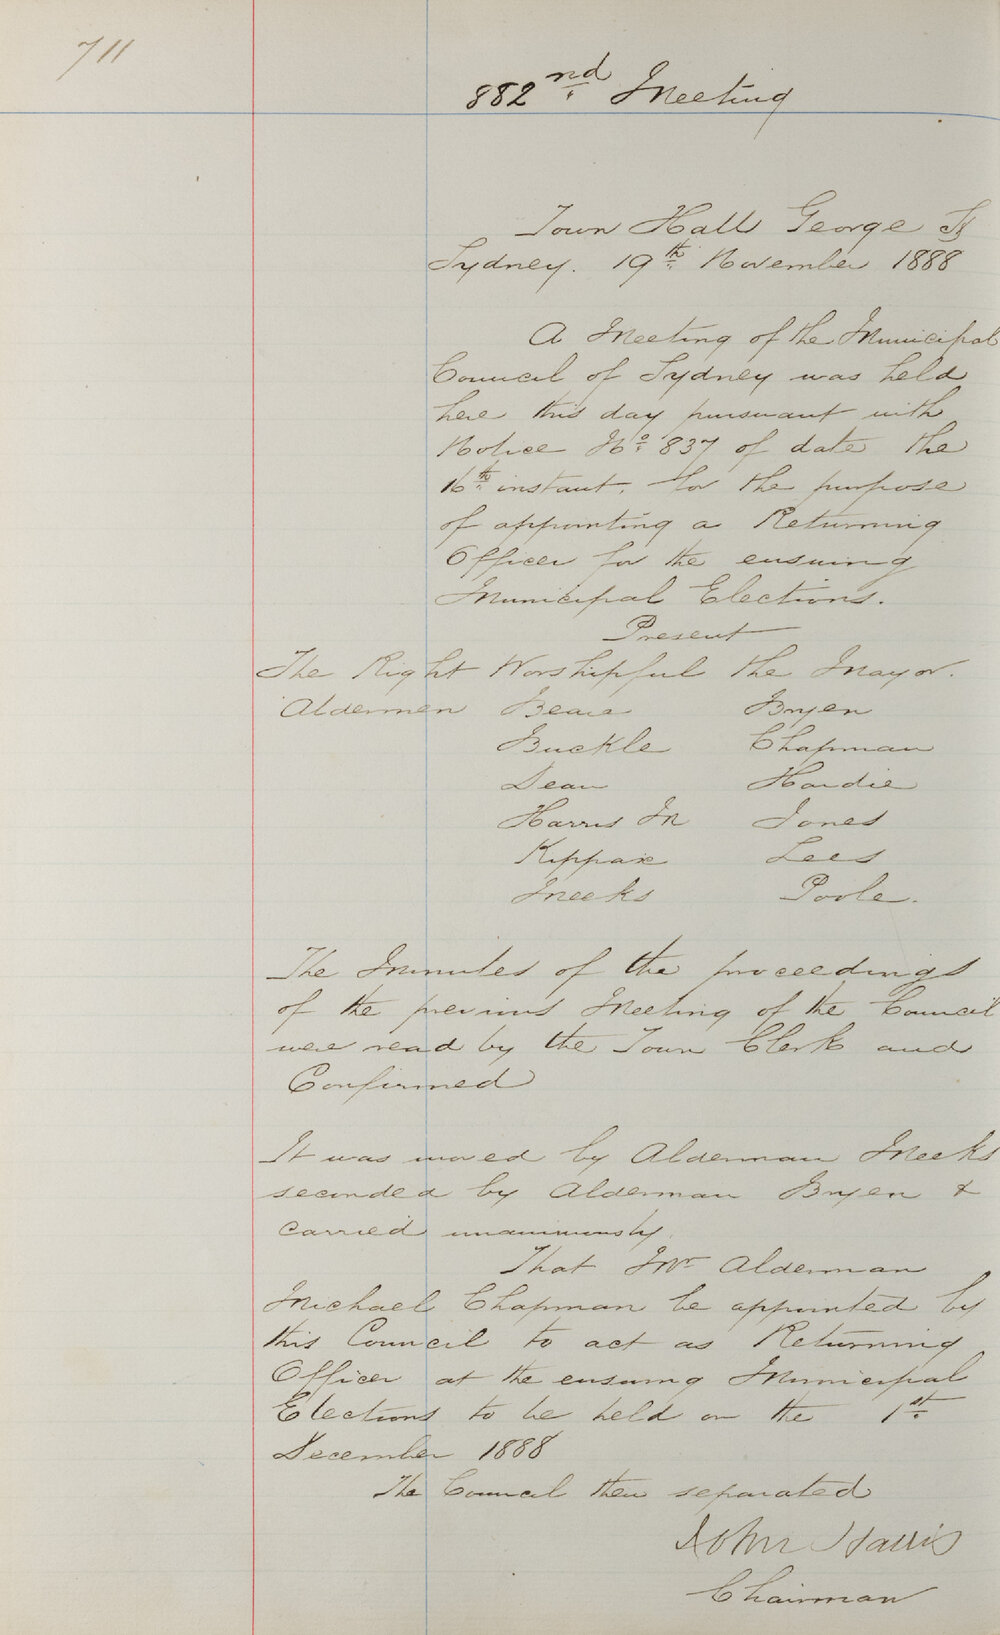 711
882nd Meeting
Town Hall George St
Sydney. 19th November 1888
A Meeting of the Municipal
Council of Sydney was held
here this day pursuant with
Notice No 837 of date the
16th instant, for the purpose
of appointing a Returning
Officer for the ensuing
Municipal Elections.
Present
The Right Worshipful the Mayor.
Aldermen Beare Bryen
Buckle Chapman
Dean Hardie
Harris Jn Jones
Kippax Lees
Meeks Poole.
The Minutes of the proceedings
of the previous Meeting of the Council
were read by the Town Clerk and
Confirmed
It was moved by Alderman Meeks
seconded by Alderman Bryen &
carried unanimously.
That Mr Alderman
Michael Chapman be appointed by
this Council to act as Returning
Officer at the ensuing Municipal
Elections to be held on the 1st
December 1888
The Council then separated
John Harris
Chairman